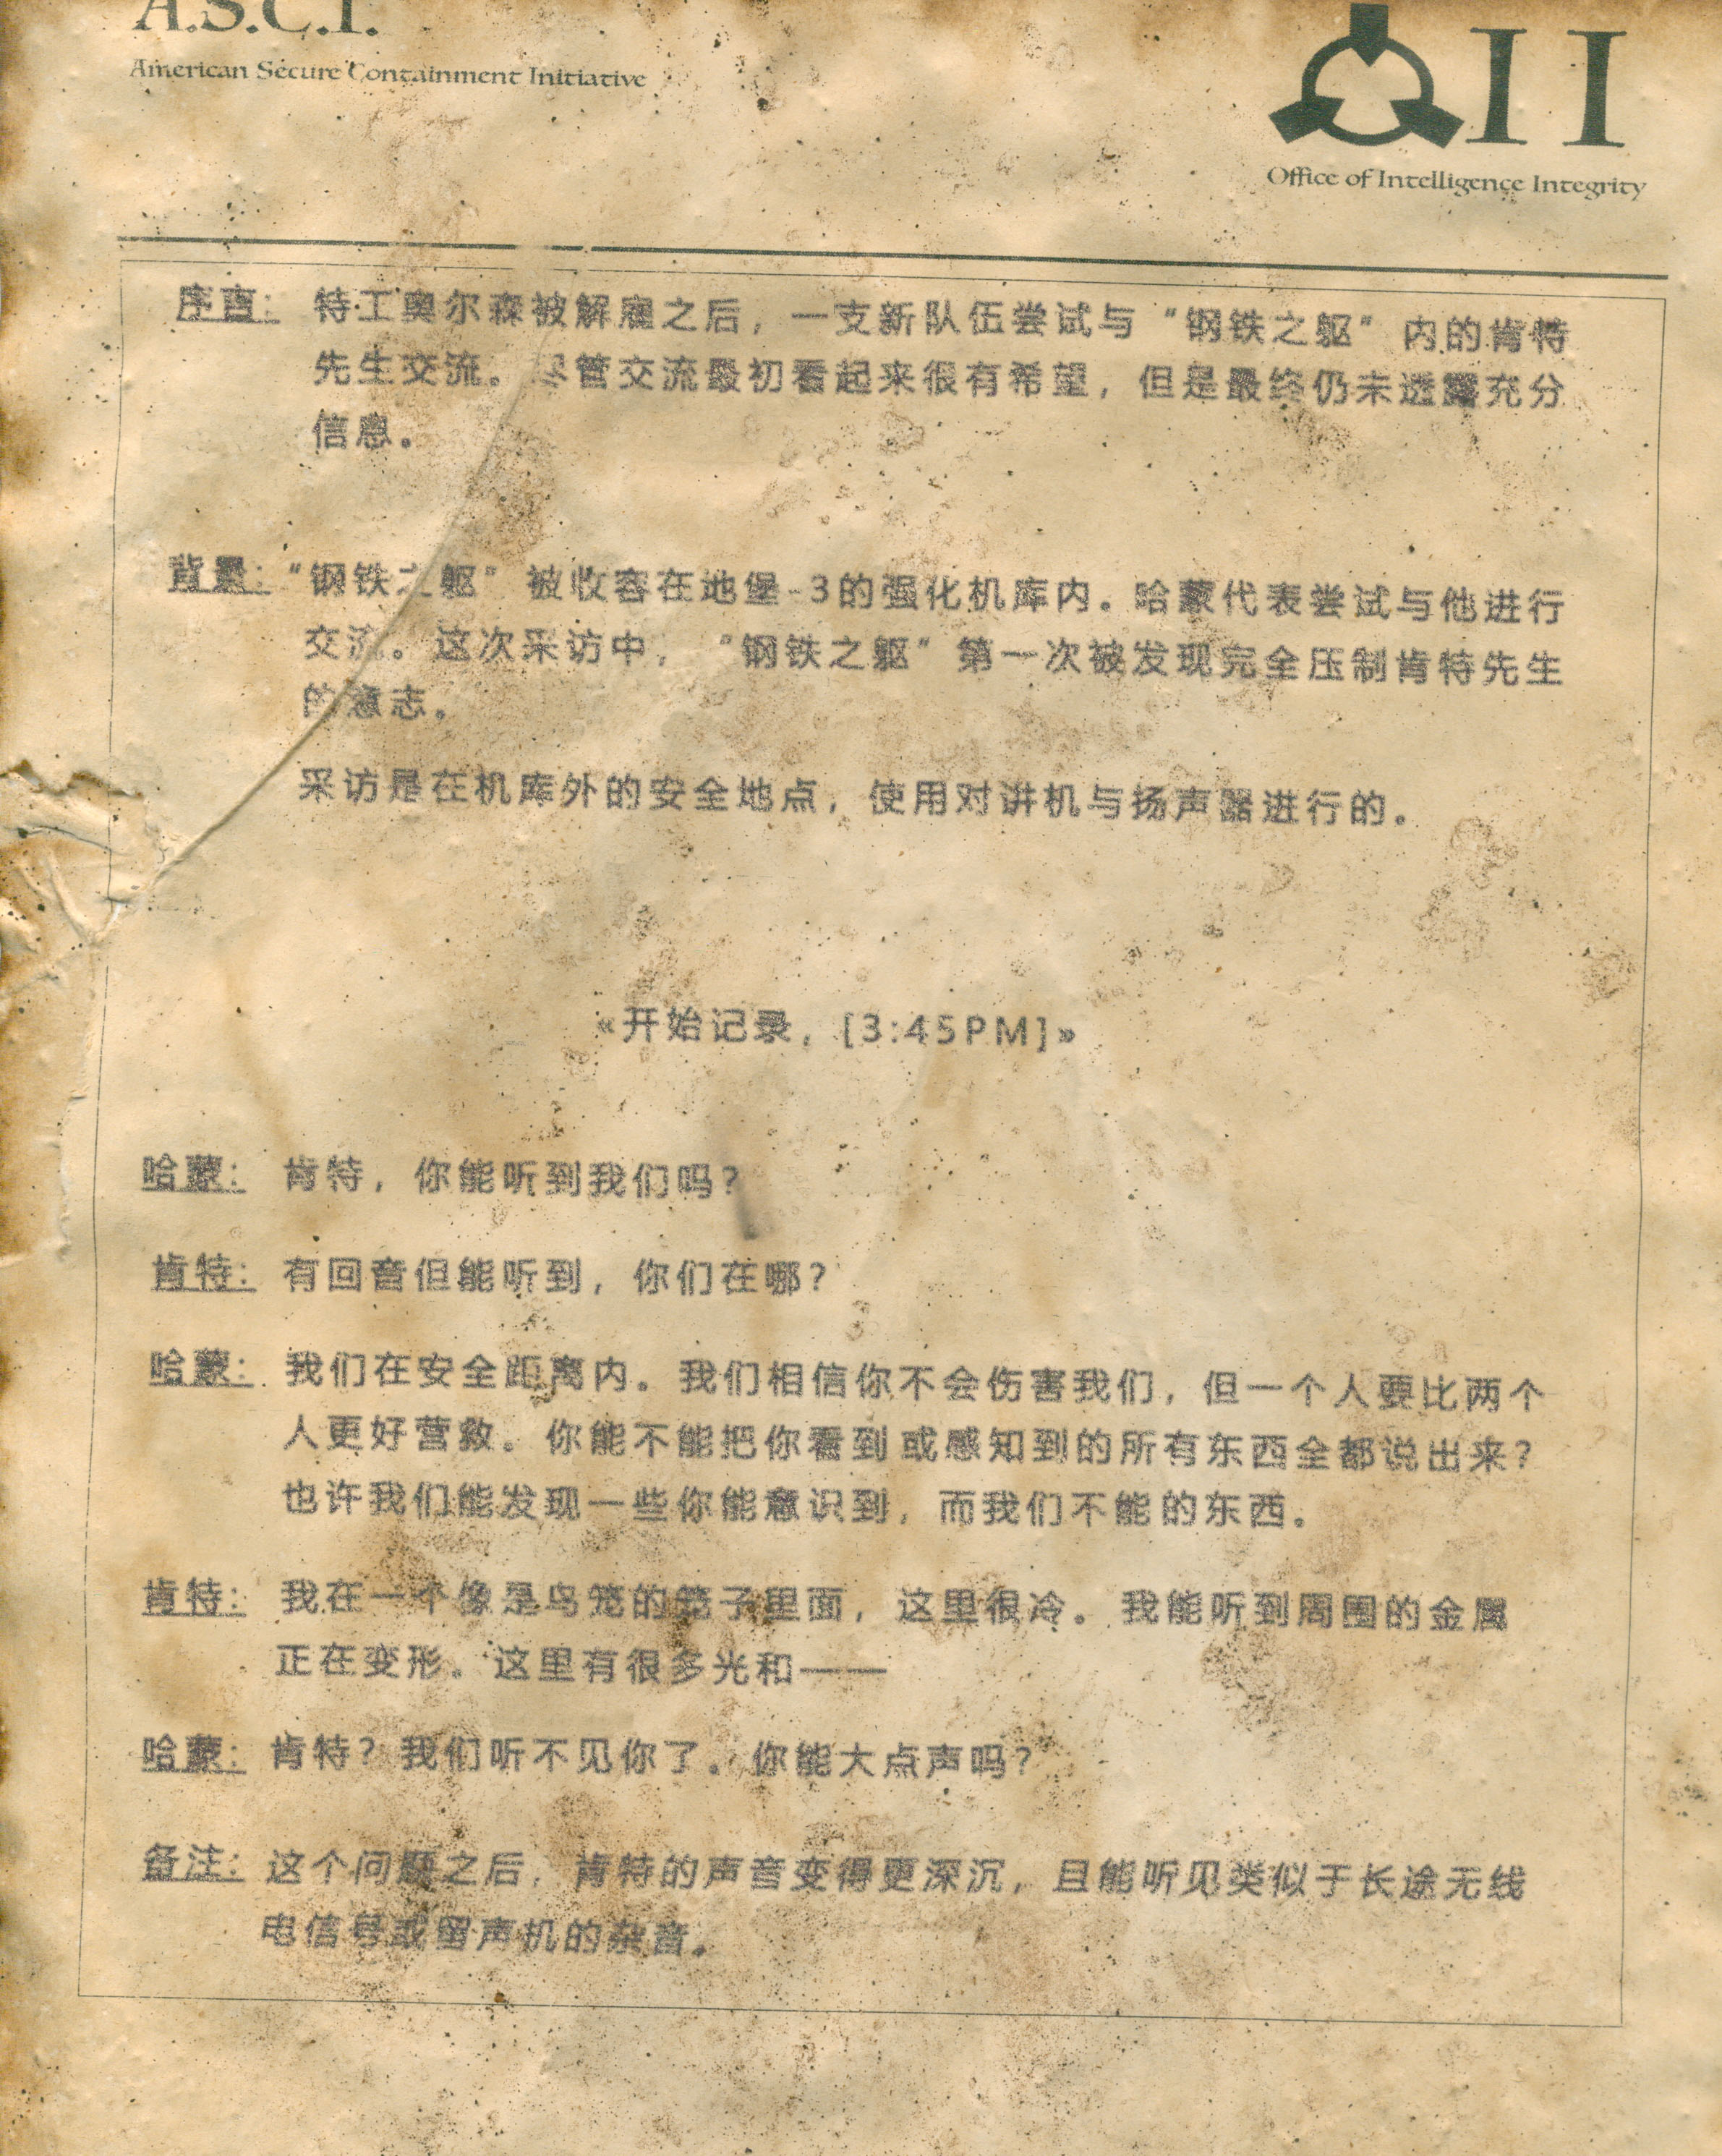 A.S.C.I.
American Secure Containment Initiative
OII
Office of Intelligence Integrity
序言: 特工奥尔森被解雇之后，一支新队伍尝试与“钢铁之躯”内的肯特
先生交流。尽管交流最初看起来很有希望，但是最终仍未透露充分
信息。
背景: “钢铁之躯”被收容在地堡-3的强化机库内。哈蒙代表尝试与他进行
交流。这次采访中，“钢铁之躯”第一次被发现完全压制肯特先生
的意志。
采访是在机库外的安全地点，使用对讲机与扬声器进行的。
«开始记录，[3:45PM]»
哈蒙: 肯特，你能听到我们吗?
肯特: 有回音但能听到，你们在哪?
哈蒙: 我们在安全距离内。我们相信你不会伤害我们，但一个人要比两个
人更好营救。你能不能把你看到或感知到的所有东西全都说出来?
也许我们能发现一些你能意识到，而我们不能的东西。
肯特: 我在一个像是鸟笼的笼子里面，这里很冷。我能听到周围的金属
正在变形。这里有很多光和——
哈蒙: 肯特? 我们听不见你了。你能大点声吗?
备注: 这个问题之后，肯特的声音变得更深沉，且能听见类似于长途无线
电信号或留声机的杂音。